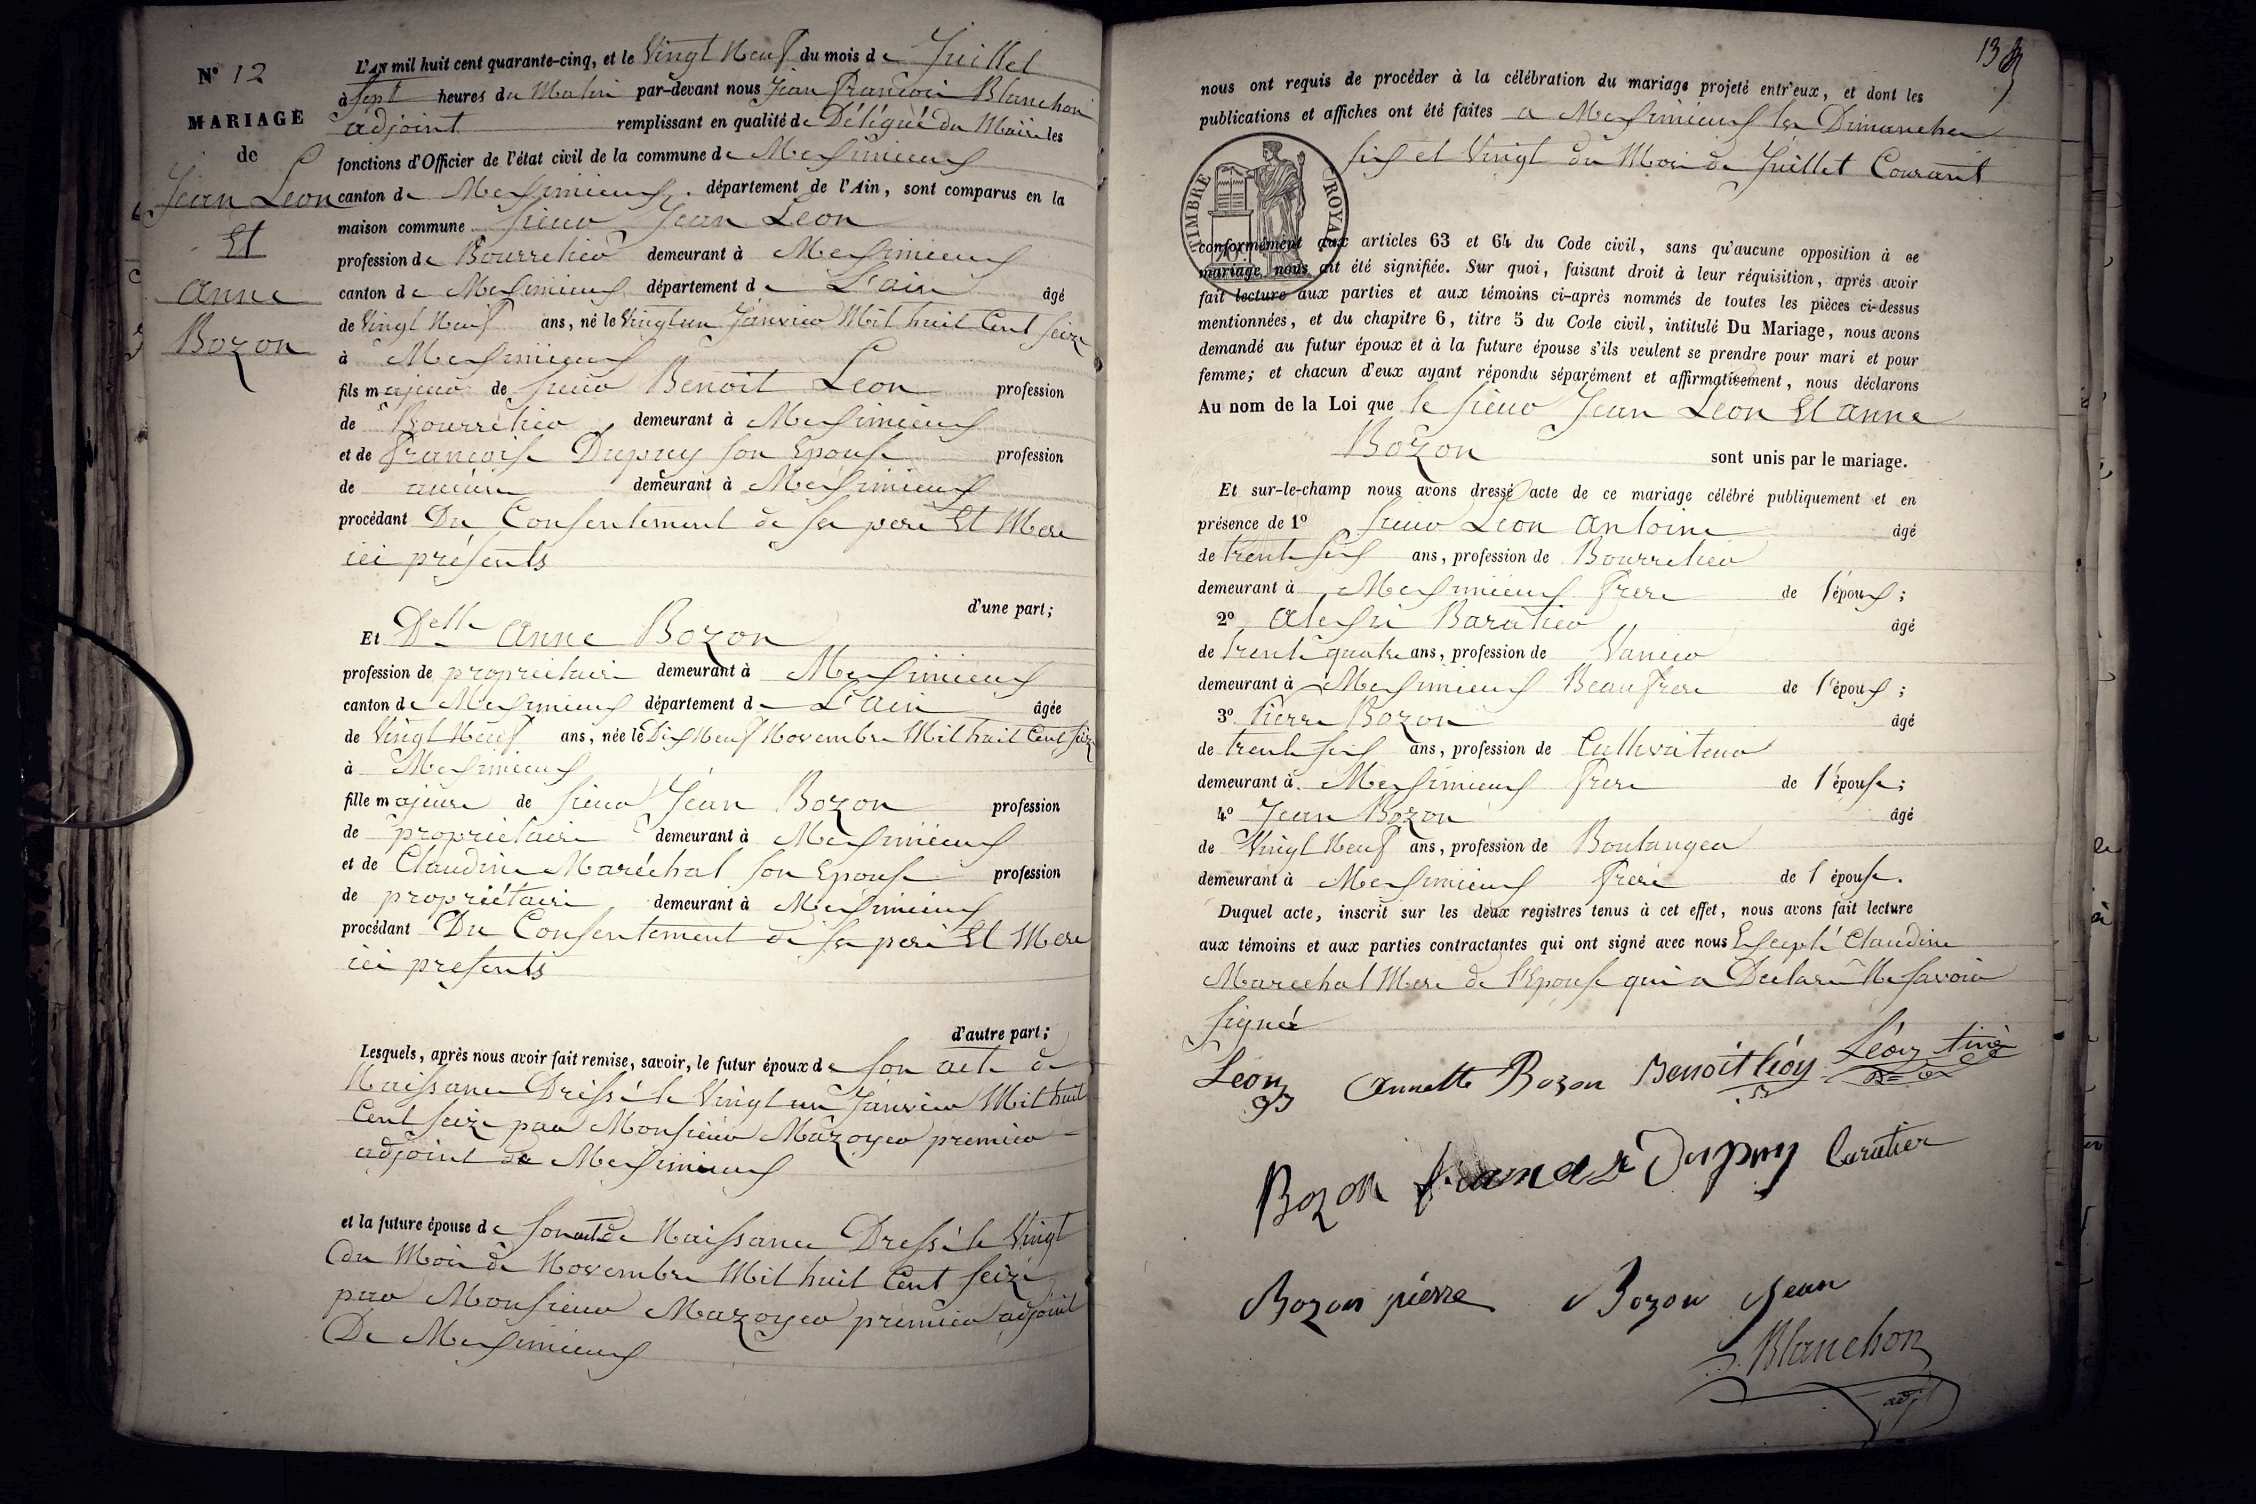 N° 12
MARIAGE
de
Jean Leon
Et
anne
Bozon
L'AN mil huit cent quarante-cinq, et le Vingt Neuf du mois de Juillet
à Sept heures du Matin par-devant nous Jean François Blanchon
adjoint remplissant en qualité de Délégué du Maire les
fonctions d'Officier de l'état civil de la commune de Messimieux
canton de Messimieux département de l'Ain, sont comparus en la
maison commune Sieur Jean Leon
profession de Bourrelier demeurant à Messimieux
canton de Messimieux département de L'ain âgé
de Vingt Neuf ans, né le Vingt un Janvier Mil huit Cent Seize
à Messimieux
fils majeur de Sieur Benoit Leon profession
de Bourrelier demeurant à Messimieux
et de Françoise Dupuy Son Epouse profession
de demeurant à Messimieux
procédant Du Consentement de Ses pere Et Mere
ici présents
d'une part;
Et Delle anne Bozon
profession de propriétaire demeurant à Messimieux
canton de Messimieux département de L'ain âgée
de Vingt Neuf ans, née le Dix Neuf Novembre Mil huit Cent Seize
à Messimieux
fille majeure de Sieur Jean Bozon profession
de propriétaire demeurant à Messimieux
et de Claudine Maréchal Son Epouse profession
de propriétaire demeurant à Messimieux
procédant Du Consentement de Ses pere Et Mere
ici presents
d'autre part;
Lesquels, après nous avoir fait remise, savoir, le futur époux de Son acte de
Naissance Dressé le Vingt un Janvier Mil huit
Cent Seize par Monsieur Mazoyer premier
adjoint de Messimieux
et la future épouse de Son acte de Naissance Dressé le Vingt
du Mois de Novembre Mil huit Cent Seize
par Monsieur Mazoyer premier adjoint
De Messimieux
13
nous ont requis de procéder à la célébration du mariage projeté entr'eux, et dont les
publications et affiches ont été faites a Messimieux les Dimanches
Six et Vingt du Mois de Juillet Courant
TIMBRE ROYAL
conformément aux articles 63 et 64 du Code civil, sans qu'aucune opposition à ce
mariage nous ait été signifiée. Sur quoi, faisant droit à leur réquisition, après avoir
fait lecture aux parties et aux témoins ci-après nommés de toutes les pièces ci-dessus
mentionnées, et du chapitre 6, titre 5 du Code civil, intitulé Du Mariage, nous avons
demandé au futur époux et à la future épouse s'ils veulent se prendre pour mari et pour
femme; et chacun d'eux ayant répondu séparément et affirmativement, nous déclarons
Au nom de la Loi que le Sieur Jean Leon Et anne
Bozon sont unis par le mariage.
Et sur-le-champ nous avons dressé acte de ce mariage célébré publiquement et en
présence de 1° Sieur Leon antoine âgé
de trente Six ans, profession de Bourrelier
demeurant à Messimieux frere de l'époux;
2° Baratier âgé
de trente quatre ans, profession de Vanier
demeurant à Messimieux Beau frere de l'époux;
3° Pierre Bozon âgé
de trente Six ans, profession de Cultivateur
demeurant à Messimieux frere de l'épouse;
4° Jean Bozon âgé
de Vingt Neuf ans, profession de Boulanger
demeurant à Messimieux frere de l'épouse.
Duquel acte, inscrit sur les deux registres tenus à cet effet, nous avons fait lecture
aux témoins et aux parties contractantes qui ont signé avec nous Excepté Claudine
Marechal Mere de l'Epouse qui a Declaré Ne Savoir
Signer
Léon Annette Bozon Benoit Léon Léon
Bozon Dupuy Baratier
Bozon pierre Bozon Jean
Blanchon
adjt